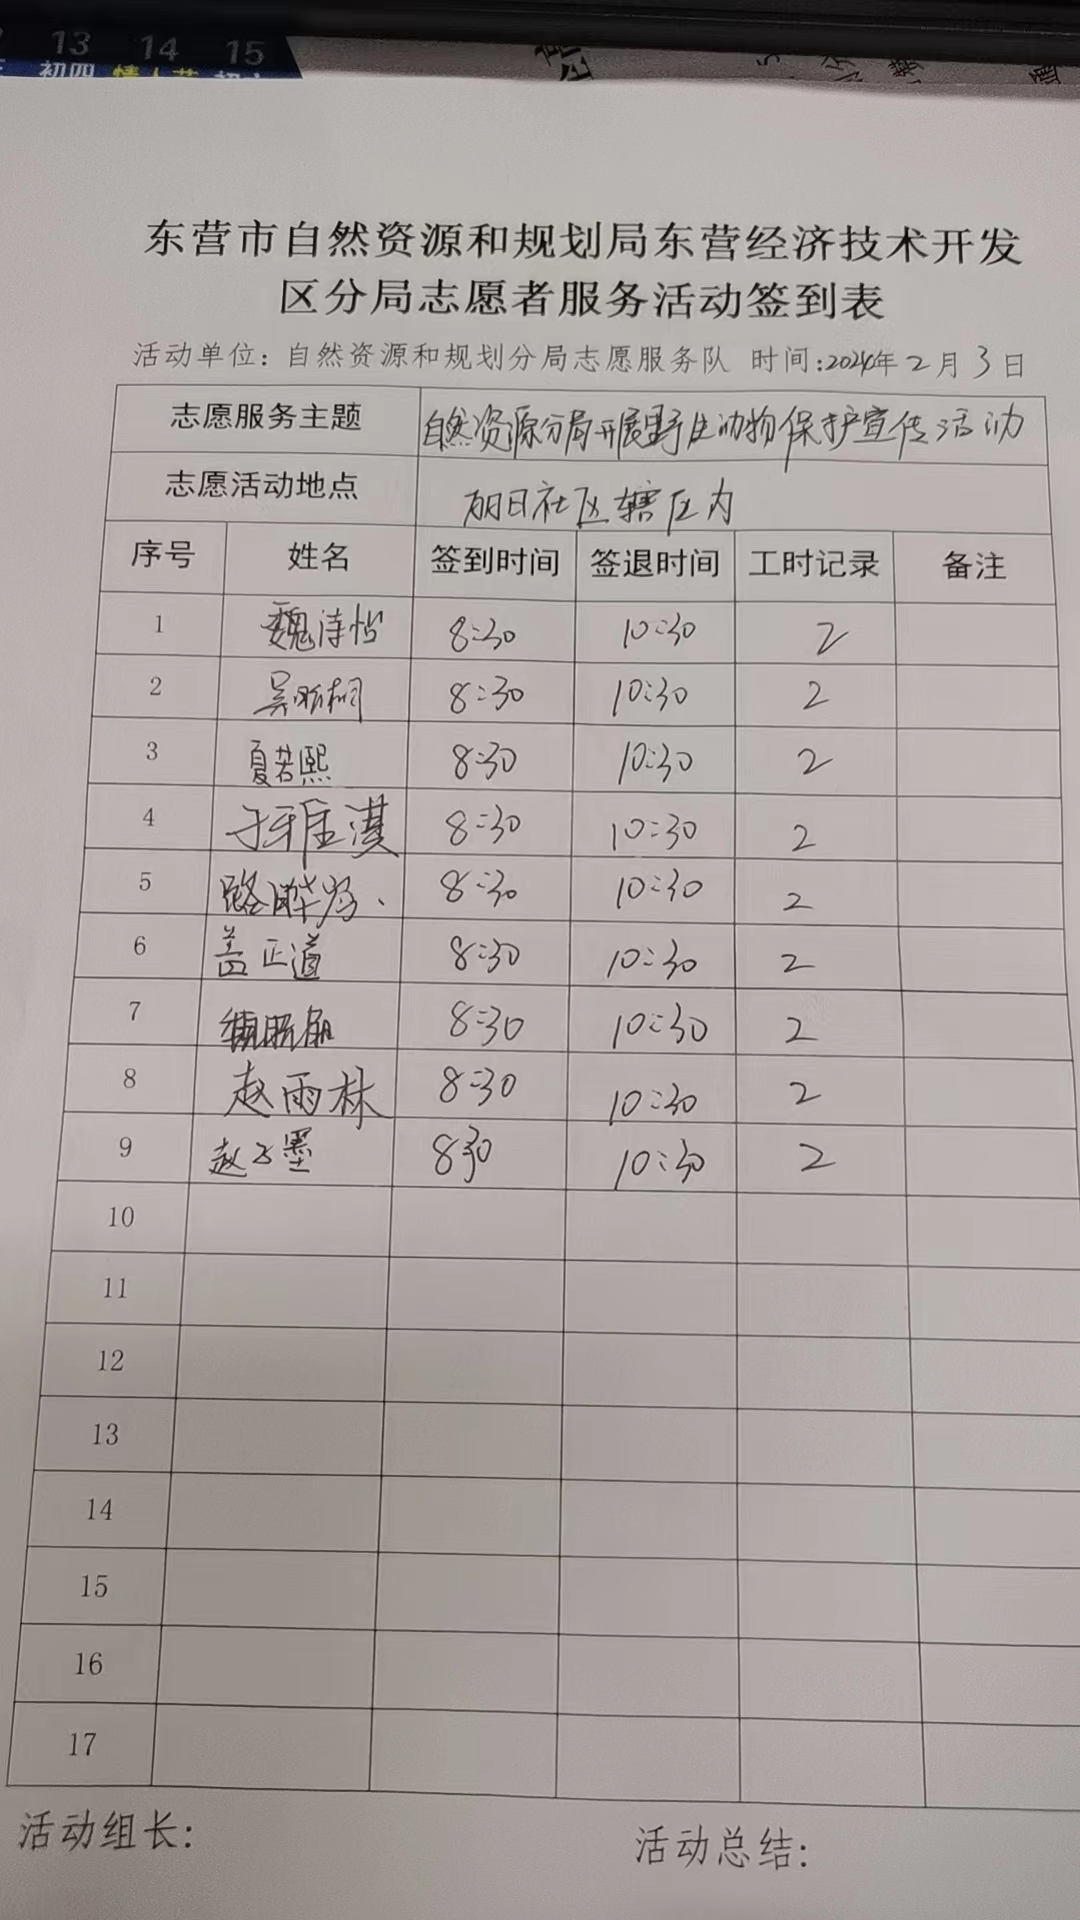 13 14 15
初四 情人节
东营市自然资源和规划局东营经济技术开发
区分局志愿者服务活动签到表
活动单位：自然资源和规划分局志愿服务队 时间:2024年2月3日
志愿服务主题 自然资源分局开展野生动物保护宣传活动
志愿活动地点 社区辖区内
序号 姓名 签到时间 签退时间 工时记录 备注
1 魏诗 8:30 10:30 2
2 吴昕桐 8:30 10:30 2
3 夏若熙 8:30 10:30 2
4 于雅淇 8:30 10:30 2
5 路晔 8:30 10:30 2
6 盖正道 8:30 10:30 2
7 8:30 10:30 2
8 赵雨林 8:30 10:30 2
9 赵子墨 8:30 10:30 2
10
11
12
13
14
15
16
17
活动组长: 活动总结: